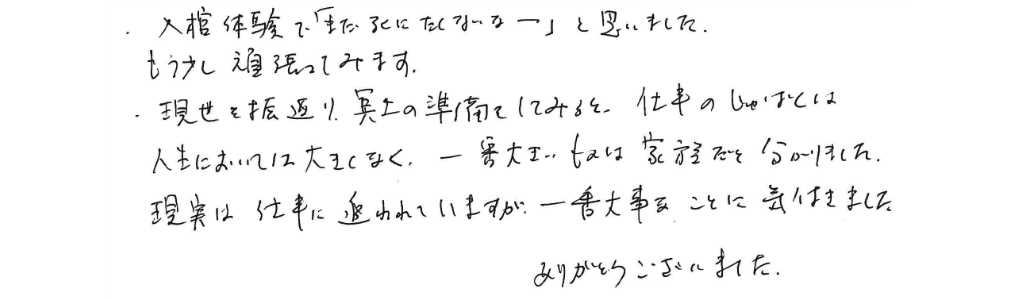 ・入棺体験で「まだ死にたくないなー」と思いました。
もう少し頑張ってみます。
・現世を振返り、冥土の準備をしてみると、仕事のしゅばくは
人生においては大きくなく、一番大きいものは家族だと分かりました。
現実は仕事に追われていますが、一番大事なことに気付きました
ありがとうございました。